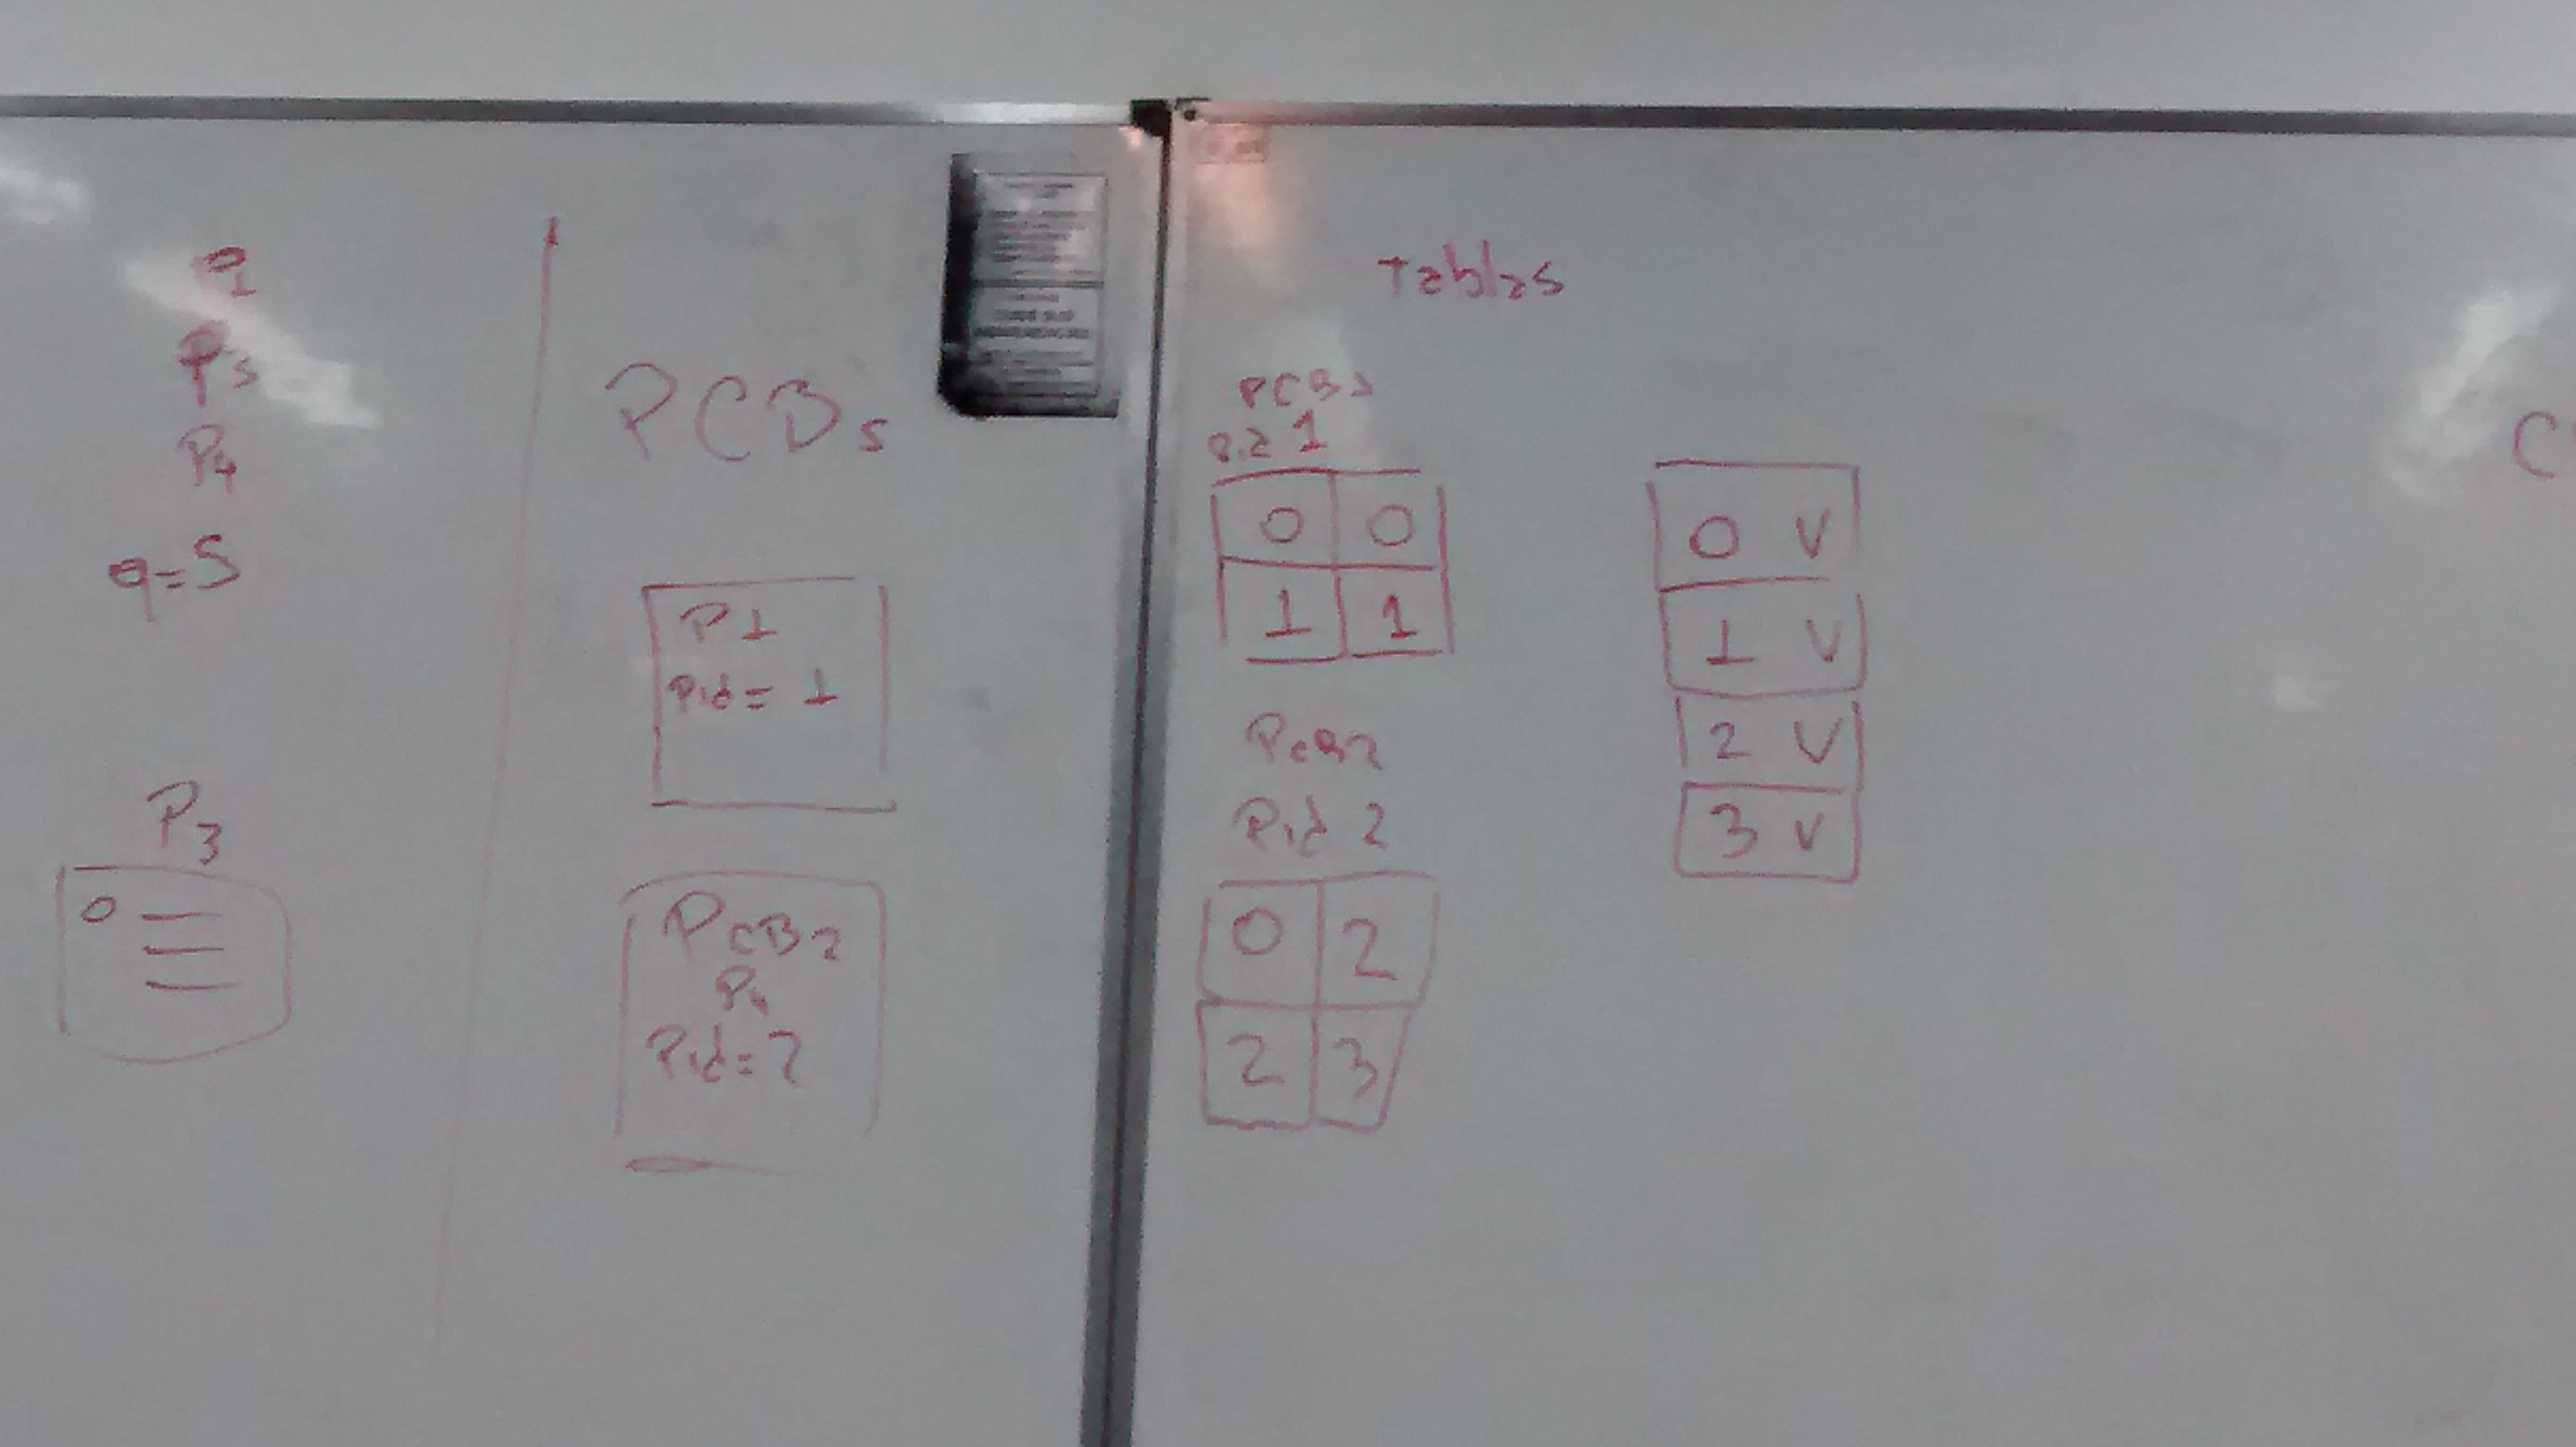 P3
P4
q=5
P3
0
PCBs
P1
Pid= 1
PCB2
Pid=2
Tablas
1
0 0
1 1
PCB2
Pid 2
0 2
2 3
0 V
1 V
2 V
3 V